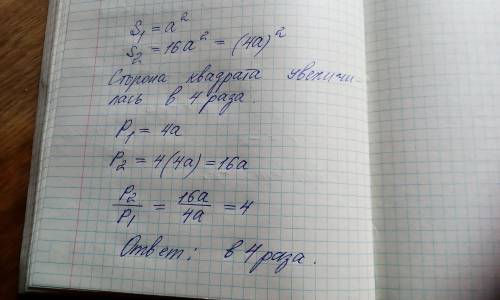 S₁ = a²
S₂ = 16a² = (4a)²
Сторона квадрата увеличи
лась в 4 раза.
P₁ = 4a
P₂ = 4(4a) = 16a
P₂/P₁ = 16a/4a = 4
Ответ: в 4 раза.